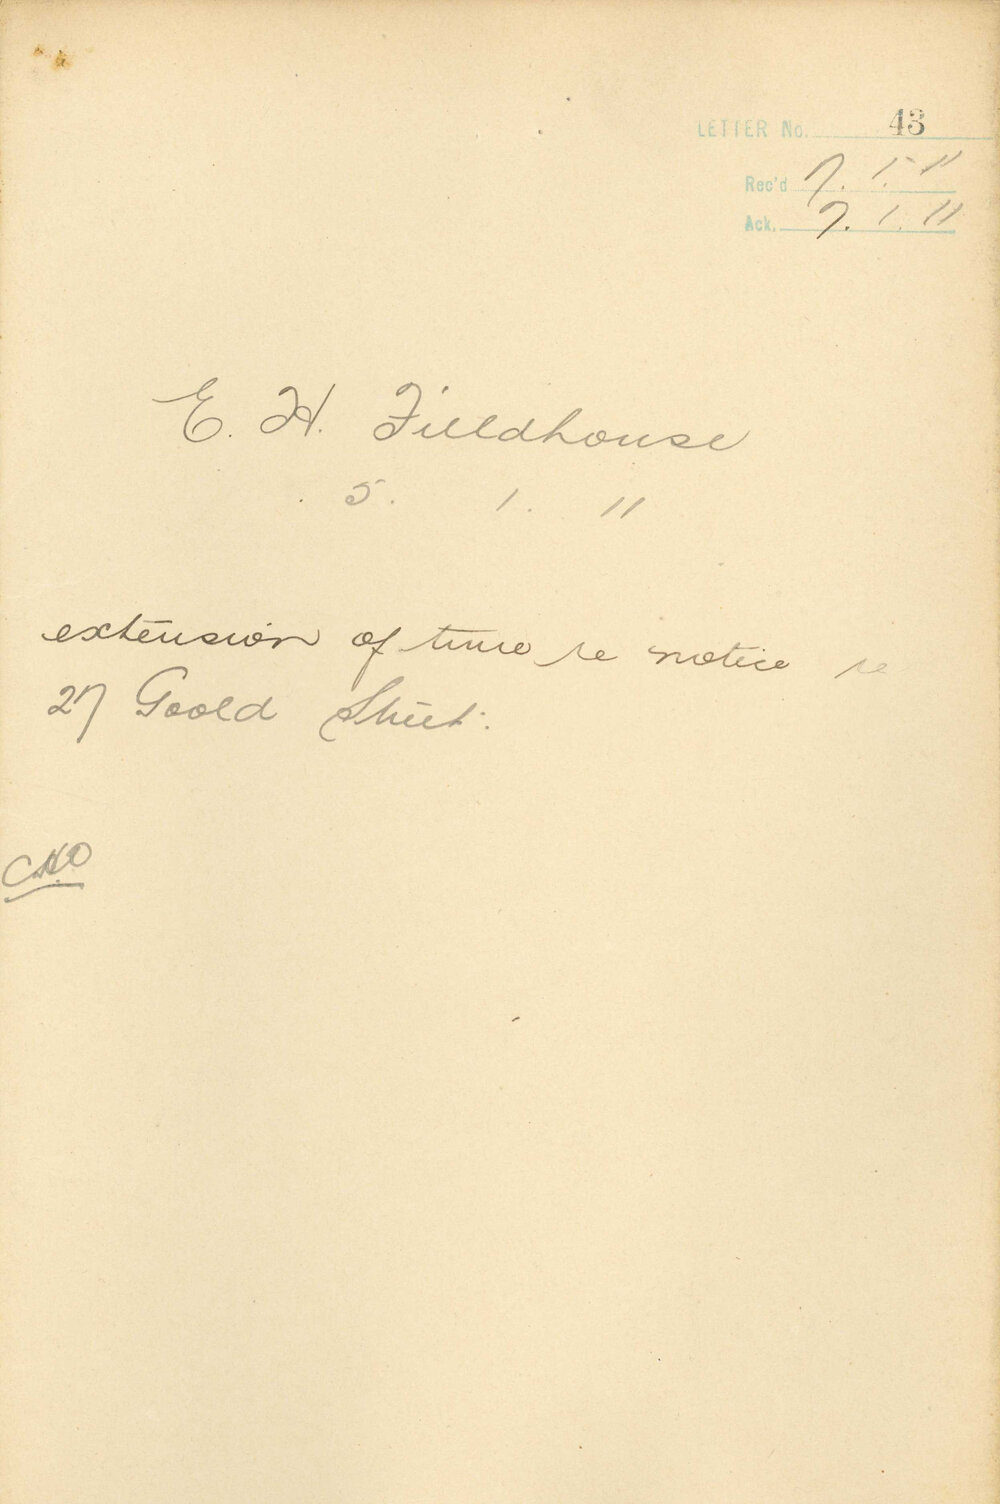 LETTER No. 43
Rec'd 7. 1. 11
Ack. 7. 1. 11
E. H. Fieldhouse
5. 1. 11
extension of time re notice re
27 Goold Street.
CHO